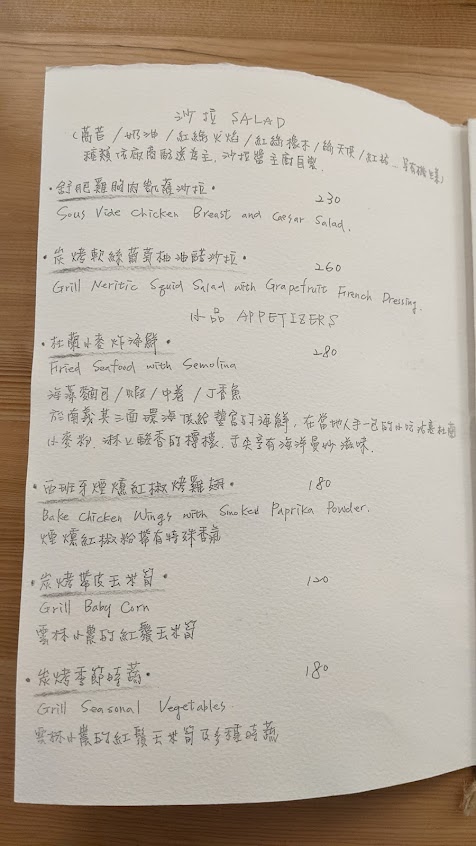 沙拉 SALAD
(萵苣/奶油/紅綠火焰/紅綠橡木/綠天使/紅
種類依廠商配送為主.沙拉醬主廚自製.
•舒肥雞胸肉凱薩沙拉• 230
Sous Vide Chicken Breast and Caesar Salad.
•炭烤軟絲葡萄柚油醋沙拉• 260
Grill Neritic Squid Salad with Grapefruit French Dressing.
小品 APPETIZERS
•杜蘭小麥炸海鮮• 280
Fried Seafood with Semolina
海藻麵包/蝦/中卷/丁香魚
於南義其三面環海供給豐富的海鮮,在當地人手一包的小吃沾裹杜蘭
小麥粉,淋上酸香的檸檬.舌尖享有海洋曼妙滋味.
•西班牙煙燻紅椒烤雞翅• 180
Bake Chicken Wings with Smoked Paprika Powder.
煙燻紅椒粉帶有特殊香氣
•炭烤帶皮玉米筍• 120
Grill Baby Corn
雲林小農的紅鬚玉米筍
•炭烤季節時蔬• 180
Grill Seasonal Vegetables.
雲林小農的紅鬚玉米筍及多種時蔬